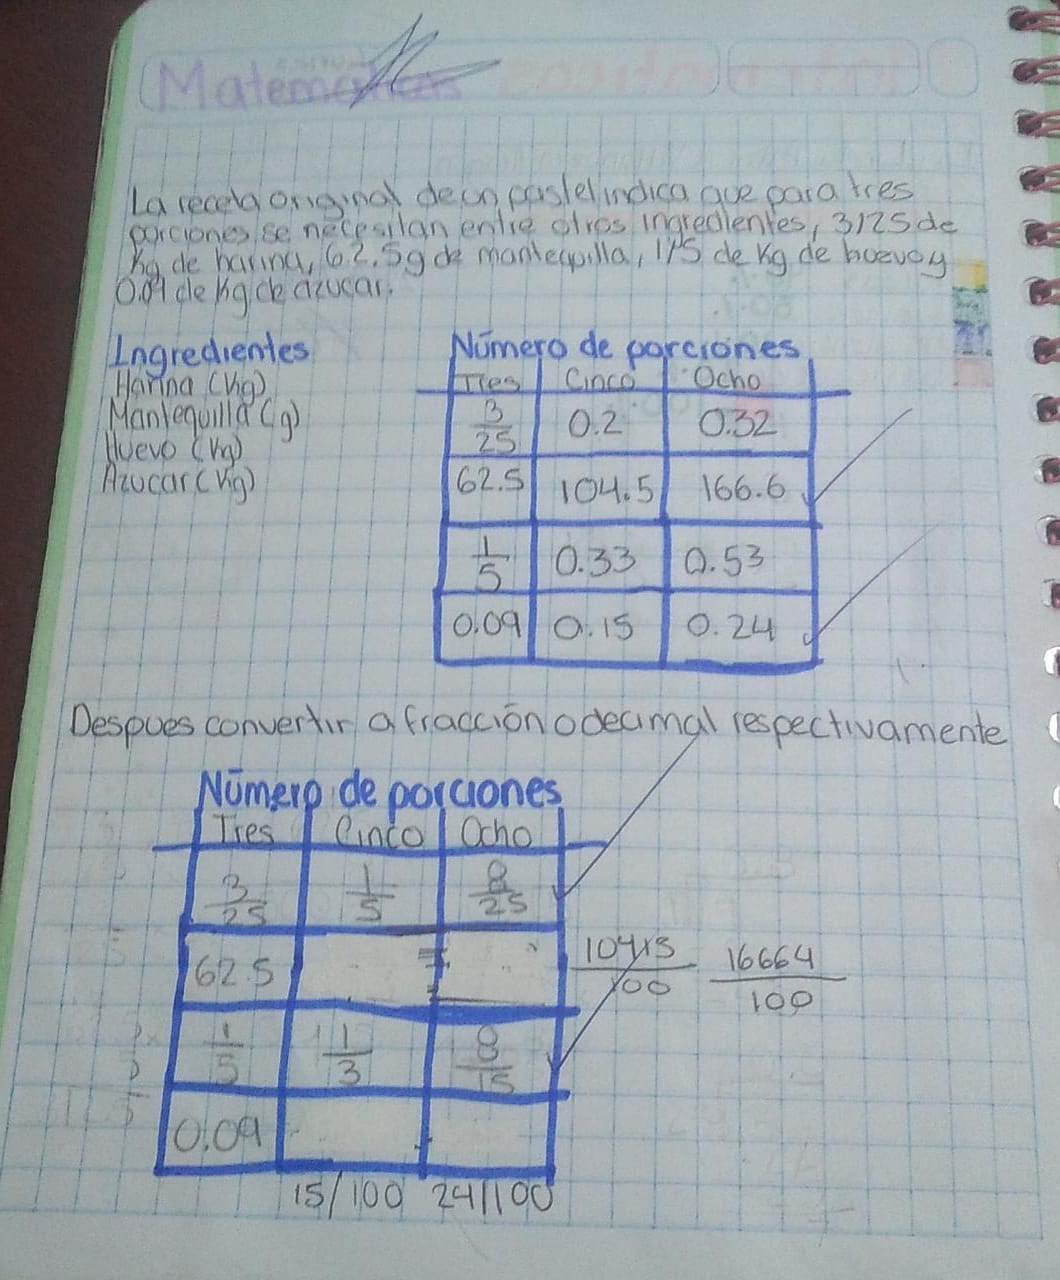 Matematicas
La receta original de un pastel indica que para tres
porciones se necesitan entre otros ingredientes, 3/25 de
Kg de harina, 62.5g de mantequilla, 1/5 de Kg de huevo y
0.09 de kg de azucar.
Ingredientes
Harina (Kg)
Mantequilla (g)
Huevo (Kg)
Azucar (Kg)
Número de porciones
Tres Cinco Ocho
3/25 0.2 0.32
62.5 104.5 166.6
1/5 0.33 0.53
0.09 0.15 0.24
Despues convertir a fracción o decimal respectivamente
Número de porciones
Tres Cinco Ocho
3/25 1/5 8/25
62.5 16664/100
1/5 1/3 8/15
0.09
15/100 24/100